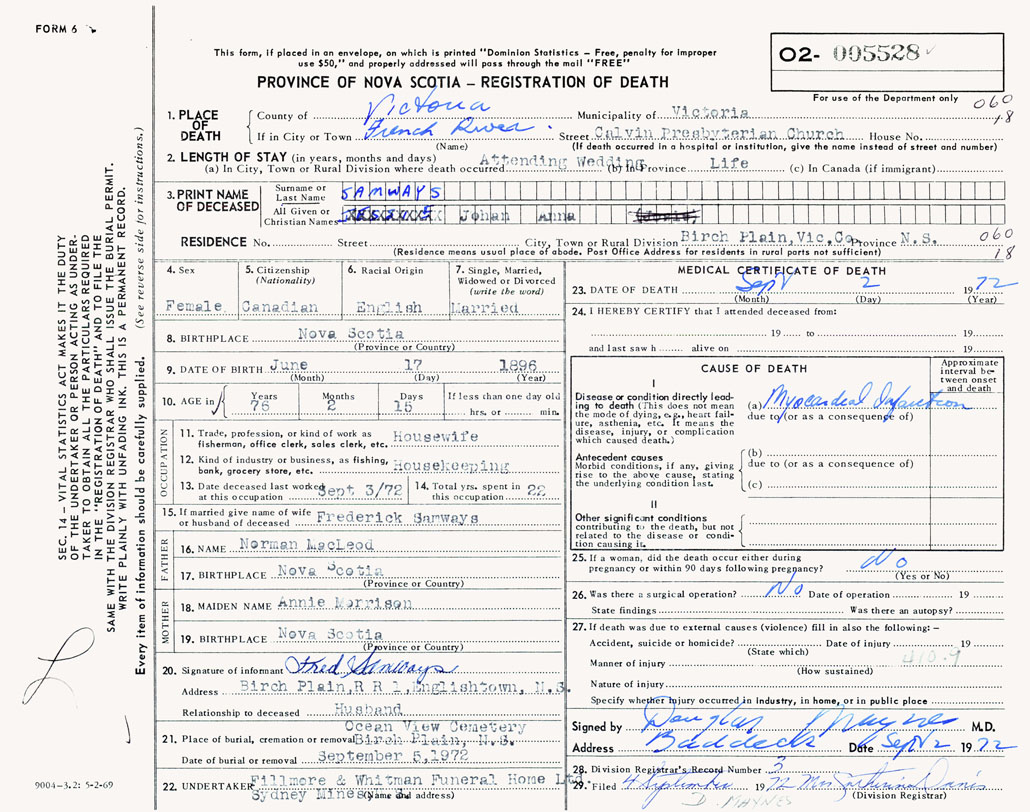 FORM 6
This form, if placed in an envelope, on which is printed "Dominion Statistics – Free, penalty for improper
use $50," and properly addressed will pass through the mail "FREE"
PROVINCE OF NOVA SCOTIA – REGISTRATION OF DEATH
02- 005528
For use of the Department only
060
18
1. PLACE OF DEATH
County of Victoria Municipality of Victoria
If in City or Town French River. Street Calvin Presbyterian Church House No.
(Name) (If death occurred in a hospital or institution, give the name instead of street and number)
2. LENGTH OF STAY (in years, months and days)
(a) In City, Town or Rural Division where death occurred Attending Wedding (b) In Province Life (c) In Canada (if immigrant)
3. PRINT NAME OF DECEASED
Surname or Last Name SAMWAYS
All Given or Christian Names Johan Anna
RESIDENCE No. Street City, Town or Rural Division Birch Plain, Vic, Co Province N.S. 060
(Residence means usual place of abode. Post Office Address for residents in rural parts not sufficient) 18
4. Sex
Female
5. Citizenship
(Nationality)
Canadian
6. Racial Origin
English
7. Single, Married,
Widowed or Divorced
(write the word)
Married
8. BIRTHPLACE Nova Scotia
(Province or Country)
9. DATE OF BIRTH June 17 1896
(Month) (Day) (Year)
10. AGE in
Years Months Days If less than one day old
76 2 15 hrs. or min.
OCCUPATION
11. Trade, profession, or kind of work as
fisherman, office clerk, sales clerk, etc. Housewife
12. Kind of industry or business, as fishing,
bank, grocery store, etc. Housekeeping
13. Date deceased last worked
at this occupation Sept 3/72
14. Total yrs. spent in
this occupation 22
15. If married give name of wife
or husband of deceased Frederick Samways
FATHER
16. NAME Norman MacLeod
17. BIRTHPLACE Nova Scotia
(Province or Country)
MOTHER
18. MAIDEN NAME Annie Morrison
19. BIRTHPLACE Nova Scotia
(Province or Country)
20. Signature of informant Fred Samways
Address Birch Plain, R R 1, Englishtown, N.S.
Relationship to deceased Husband
Ocean View Cemetery
21. Place of burial, cremation or removal Birch Plain, N.S.
Date of burial or removal September 5, 1972
22. UNDERTAKER Fillmore & Whitman Funeral Home Ltd
Sydney Mines
(Name and address)
MEDICAL CERTIFICATE OF DEATH
23. DATE OF DEATH Sept 2 1972
(Month) (Day) (Year)
24. I HEREBY CERTIFY that I attended deceased from:
19 to 19
and last saw h alive on 19
CAUSE OF DEATH
Approximate
interval be-
tween onset
and death
I
Disease or condition directly lead-
ing to death (This does not mean
the mode of dying, e.g., heart fail-
ure, asthenia, etc. It means the
disease, injury, or complication
which caused death.)
(a) Myocardial Infarction
due to (or as a consequence of)
Antecedent causes
Morbid conditions, if any, giving
rise to the above cause, stating
the underlying condition last.
(b)
due to (or as a consequence of)
(c)
II
Other significant conditions
contributing to the death, but not
related to the disease or condi-
tion causing it.
25. If a woman, did the death occur either during
pregnancy or within 90 days following pregnancy? No
(Yes or No)
26. Was there a surgical operation? No Date of operation 19
State findings Was there an autopsy?
27. If death was due to external causes (violence) fill in also the following: –
Accident, suicide or homicide? Date of injury 19
(State which)
410.9
Manner of injury
(How sustained)
Nature of injury
Specify whether Injury occurred in Industry, in home, or in public place
Signed by Douglas Maynes M.D.
Address Baddeck Date Sept 2 1972
28. Division Registrar's Record Number 3
29. Filed 4 September 1972 Mrs
(Division Registrar)
D. MAYNES
SEC. 14 – VITAL STATISTICS ACT MAKES IT THE DUTY
OF THE UNDERTAKER OR PERSON ACTING AS UNDER-
TAKER TO OBTAIN ALL THE PARTICULARS REQUIRED
IN THE "REGISTRATION OF DEATH" AND TO FILE THE
SAME WITH THE DIVISION REGISTRAR WHO SHALL ISSUE THE BURIAL PERMIT.
WRITE PLAINLY WITH UNFADING INK. THIS IS A PERMANENT RECORD.
Every item of information should be carefully supplied. (See reverse side for instructions.)
9004-3.2: 5-2-69